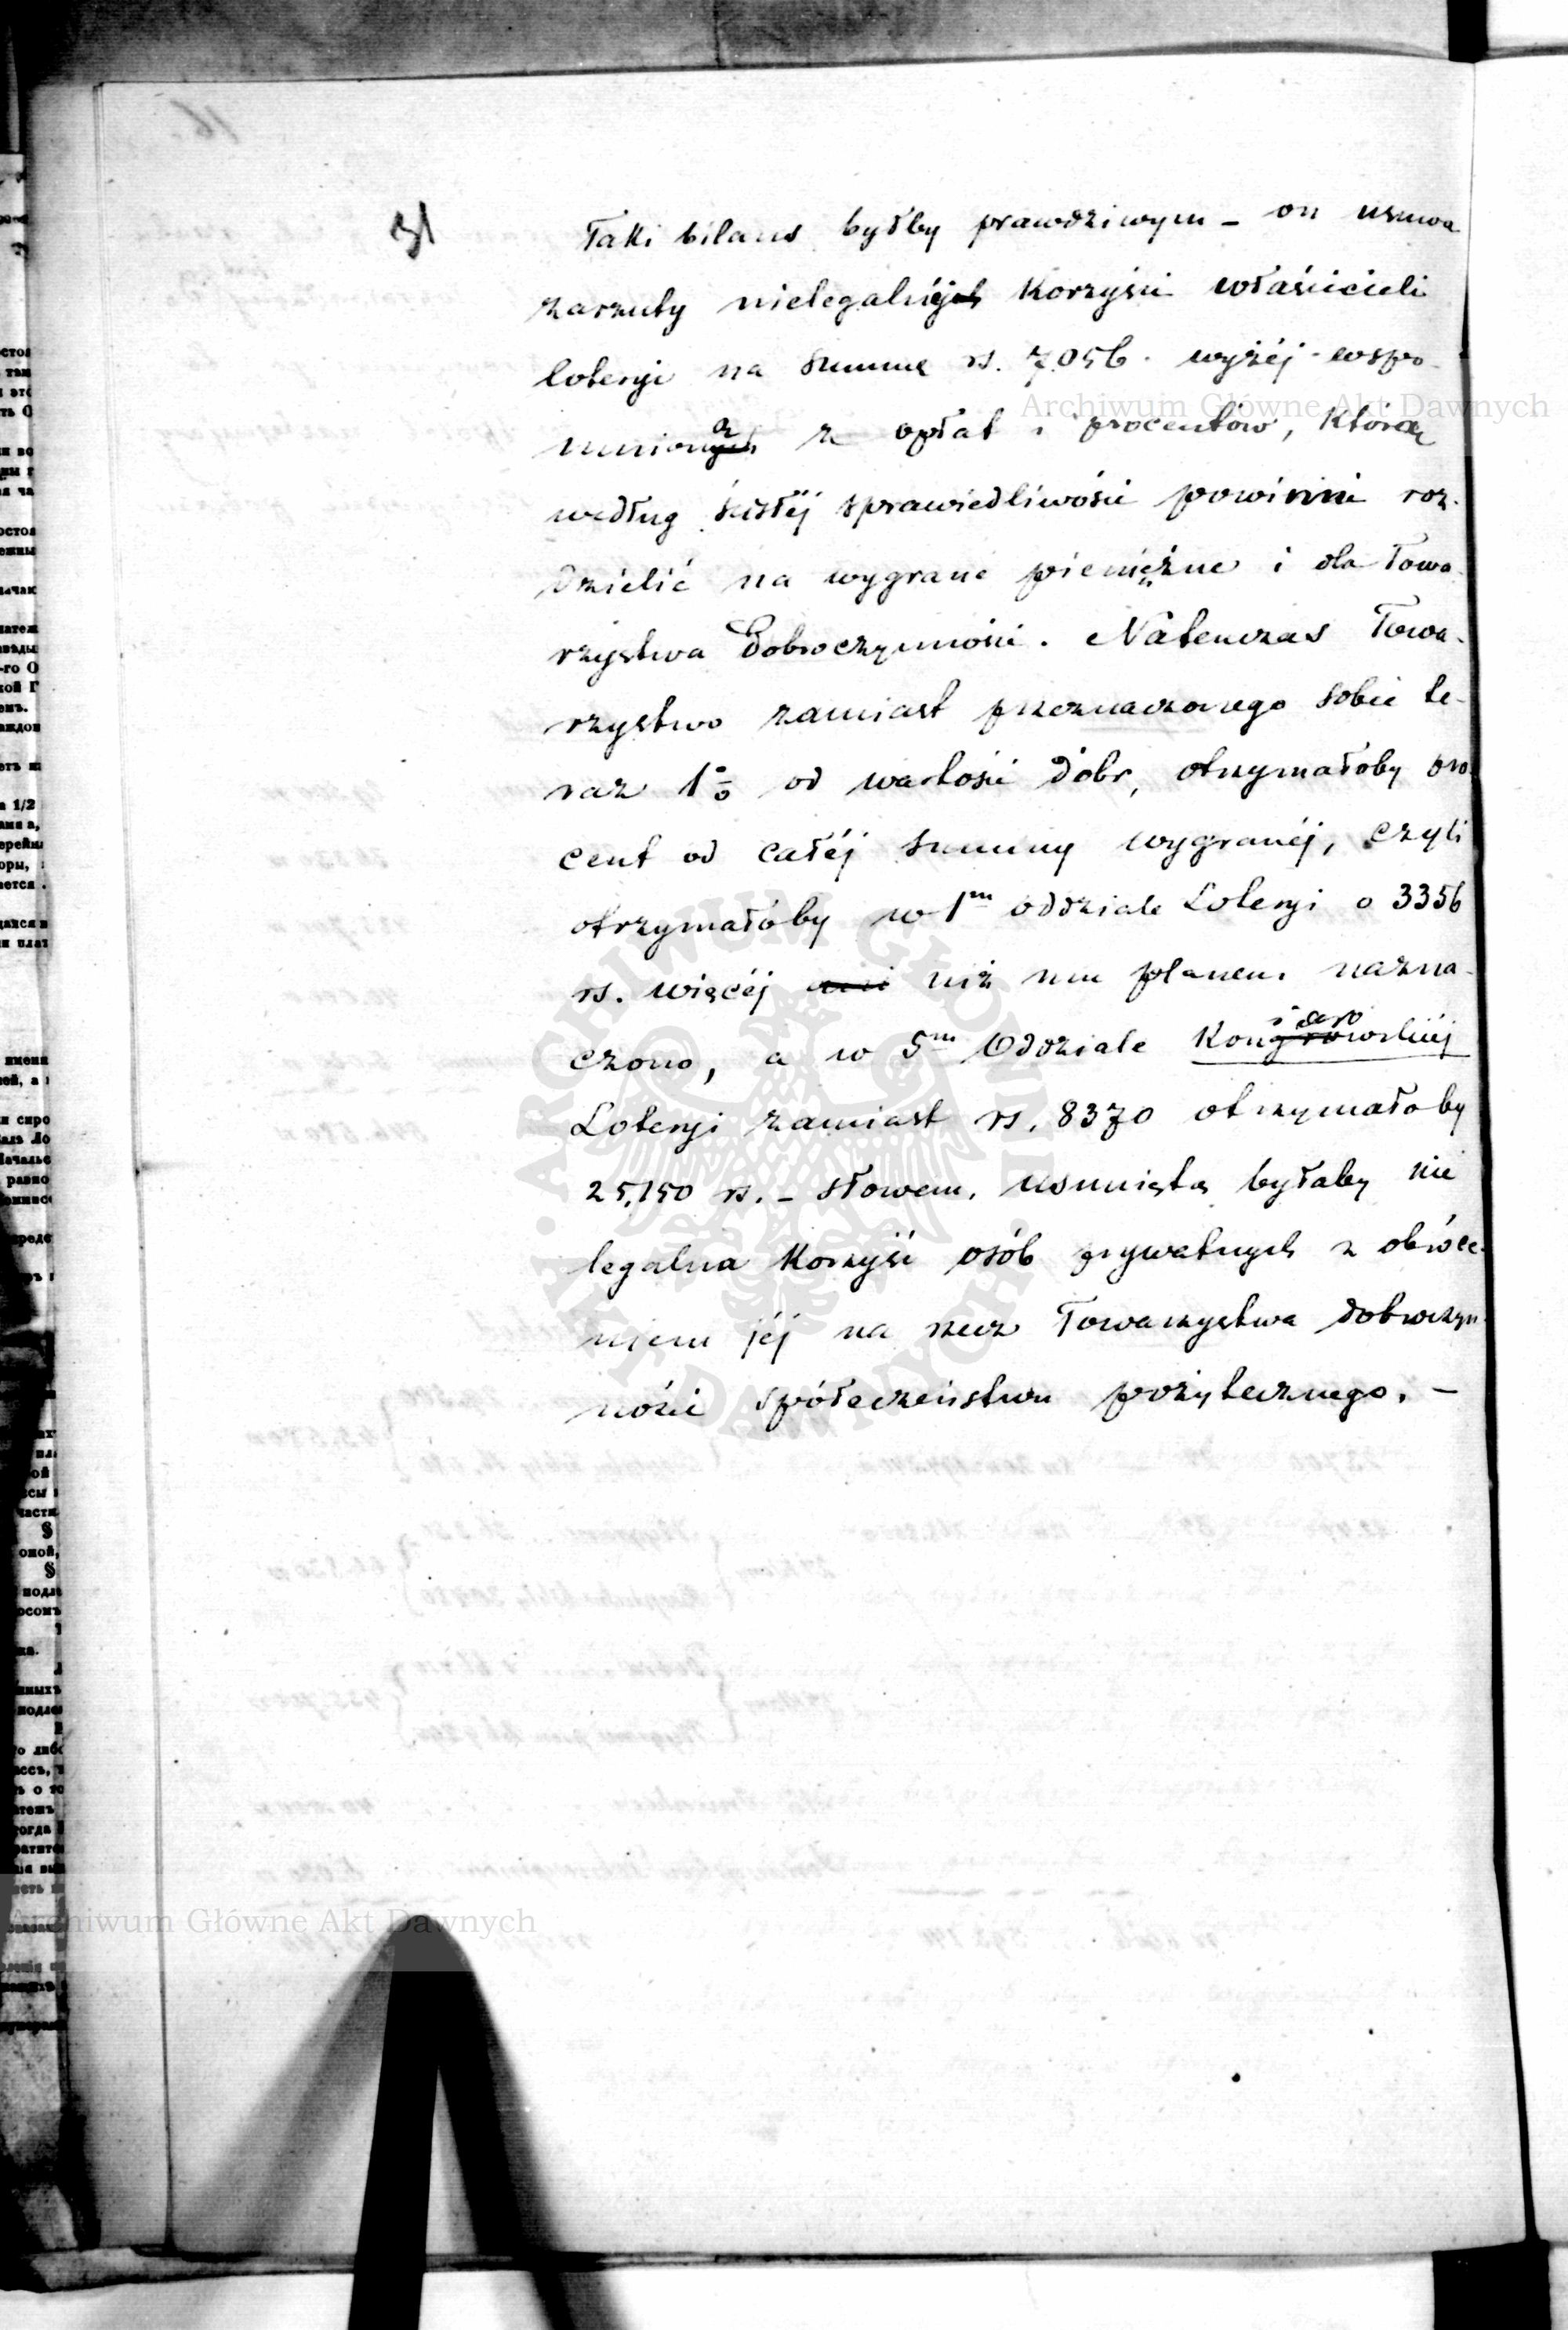 31
Taki bilans byłby prawdziwym – on usuwa
zarzuty nielegalnéj korzyści właścicieli
loteryi na summę rs. 7,056. wyżéj wspo-
mniona z opłat i procentów, którą
według ścisłéj sprawiedliwości powinni roz-
dzielić na wygrane pieniężne i dla Towa-
rzystwa Dobroczynności. Natenczas Towa-
rzystwo zamiast przeznaczonego sobie te-
raz 1% od wartości dóbr, otrzymałoby pro-
cent od całéj summy wygranéj, czyli
otrzymałoby w 1m oddziale Loteryi o 3356
rs. więcéj niż mu planem nazna-
czono, a w 5m Oddziale
Loteryi zamiast rs. 8370 otrzymałoby
25,150 rs. – słowem, usuniętą byłaby nie
legalna korzyść osób prywatnych z obróce-
niem jéj na rzecz Towarzystwa dobroczyn-
ności społeczeństwu pożytecznego. –
Archiwum Główne Akt Dawnych
ARCHIWUM GŁÓWNE AKT DAWNYCH
Archiwum Główne Akt Dawnych